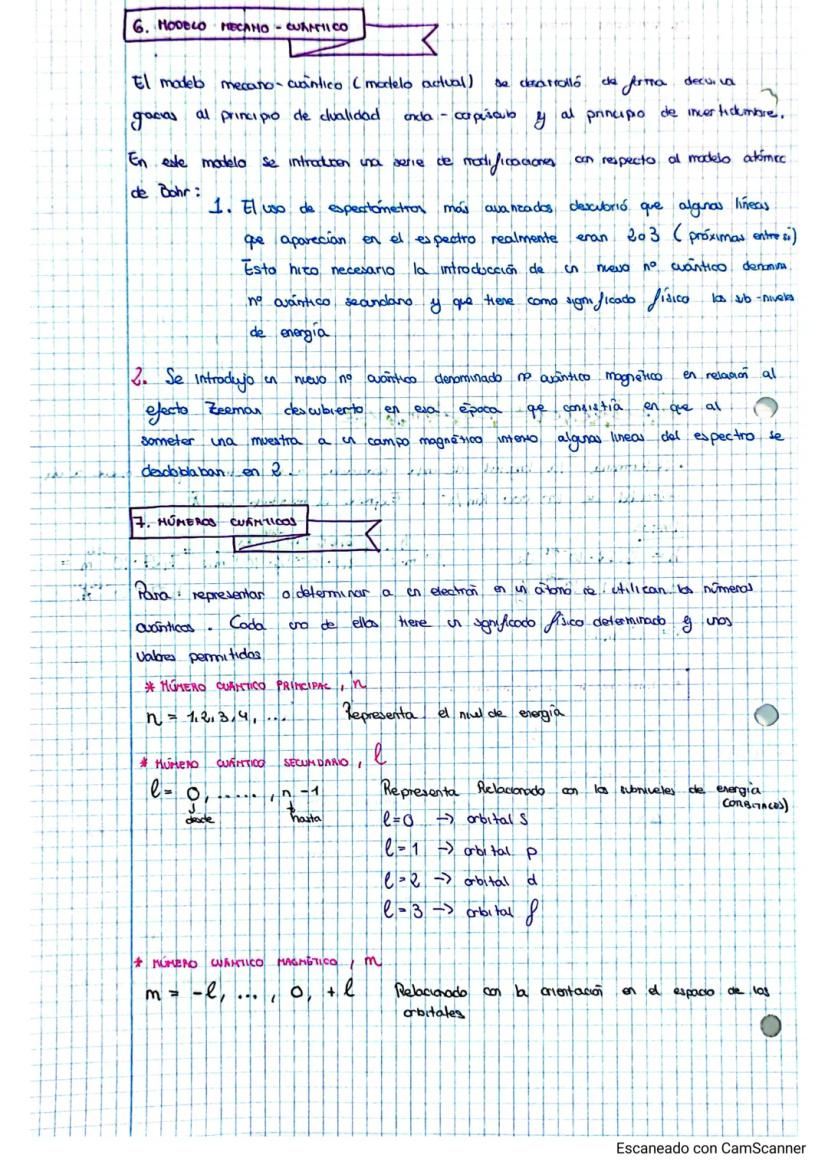 6. MODELO MECANO-CUÁNTICO
El modelo mecano-cuántico (modelo actual) se desarrolló de forma decisiva
gracias al principio de dualidad onda-corpúsculo y al principio de incertidumbre.
En este modelo se introducen una serie de modificaciones con respecto al modelo atómic
de Bohr:
1. El uso de espectómetros más avanzados descubrió que algunas líneas
que aparecían en el espectro realmente eran 2 o 3 (próximas entre si)
Esto hizo necesario la introducción de un nuevo nº cuántico denomina
nº cuántico secundario y que tiene como significado físico los sub-niveles
de energía
2. Se introdujo un nuevo nº cuántico denominado nº cuántico magnético en relación al
efecto Zeeman descubierto en esa época que consistía en que al
someter una muestra a un campo magnético intenso algunas lineas del espectro se
desdoblaban en 2.
7. NÚMEROS CUÁNTICOS
Para representar o determinar a un electrón en un átomo se utilizan los números
cuánticos. Cada uno de ellos tiene un significado físico determinado y unos
valores permitidos
* NÚMERO CUÁNTICO PRINCIPAL, n
n = 1,2,3,4, ... Representa el nivel de energía
* NÚMERO CUÁNTICO SECUNDARIO, l
l = 0, ....., n-1 Representa Relacionado con los subniveles de energía
desde hasta (ORBITALES)
l=0 → orbital s
l=1 → orbital p
l=2 → orbital d
l=3 → orbital f
* NÚMERO CUÁNTICO MAGNÉTICO, m
m = -l, ..., 0, +l Relacionado con la orientación en el espacio de los
orbitales
Escaneado con CamScanner